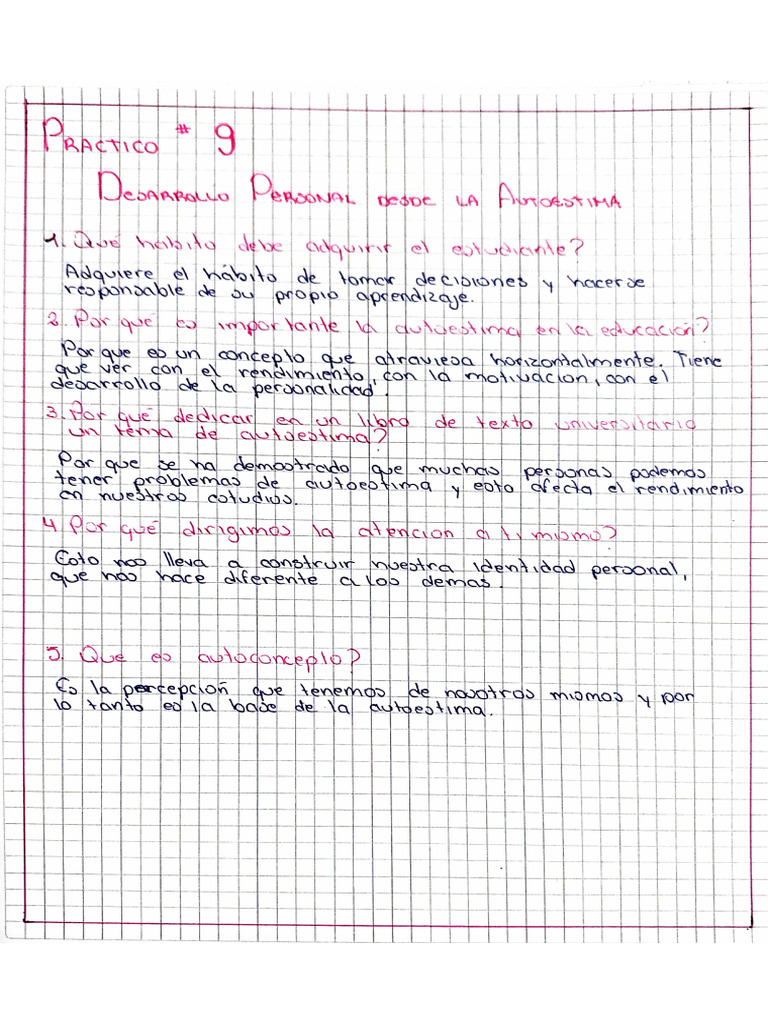 PRACTICO # 9
DESARROLLO PERSONAL DESDE LA AUTOESTIMA
1. Qué habito debe adquirir el estudiante?
Adquiere el hábito de tomar decisiones y hacerse
responsable de su propio aprendizaje.
2. Por qué es importante la autoestima en la educación?
Por que es un concepto que atraviesa horizontalmente. Tiene
que ver con el rendimiento, con la motivacion, con el
desarrollo de la personalidad.
3. Por qué dedicar en un libro de texto universitario
un tema de autoestima?
Por que se ha demostrado que muchas personas podemos
tener problemas de autoestima y esto afecta el rendimiento
en nuestros estudios.
4 Por qué dirigimos la atencion a ti mismo?
Esto nos lleva a construir nuestra identidad personal,
que nos hace diferente a los demas.
5. Que es autoconcepto?
Es la percepción que tenemos de nosotros mismos y por
lo tanto es la base de la autoestima.